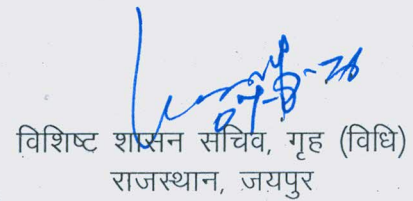 विशिष्ट शासन सचिव, गृह (विधि)
राजस्थान, जयपुर